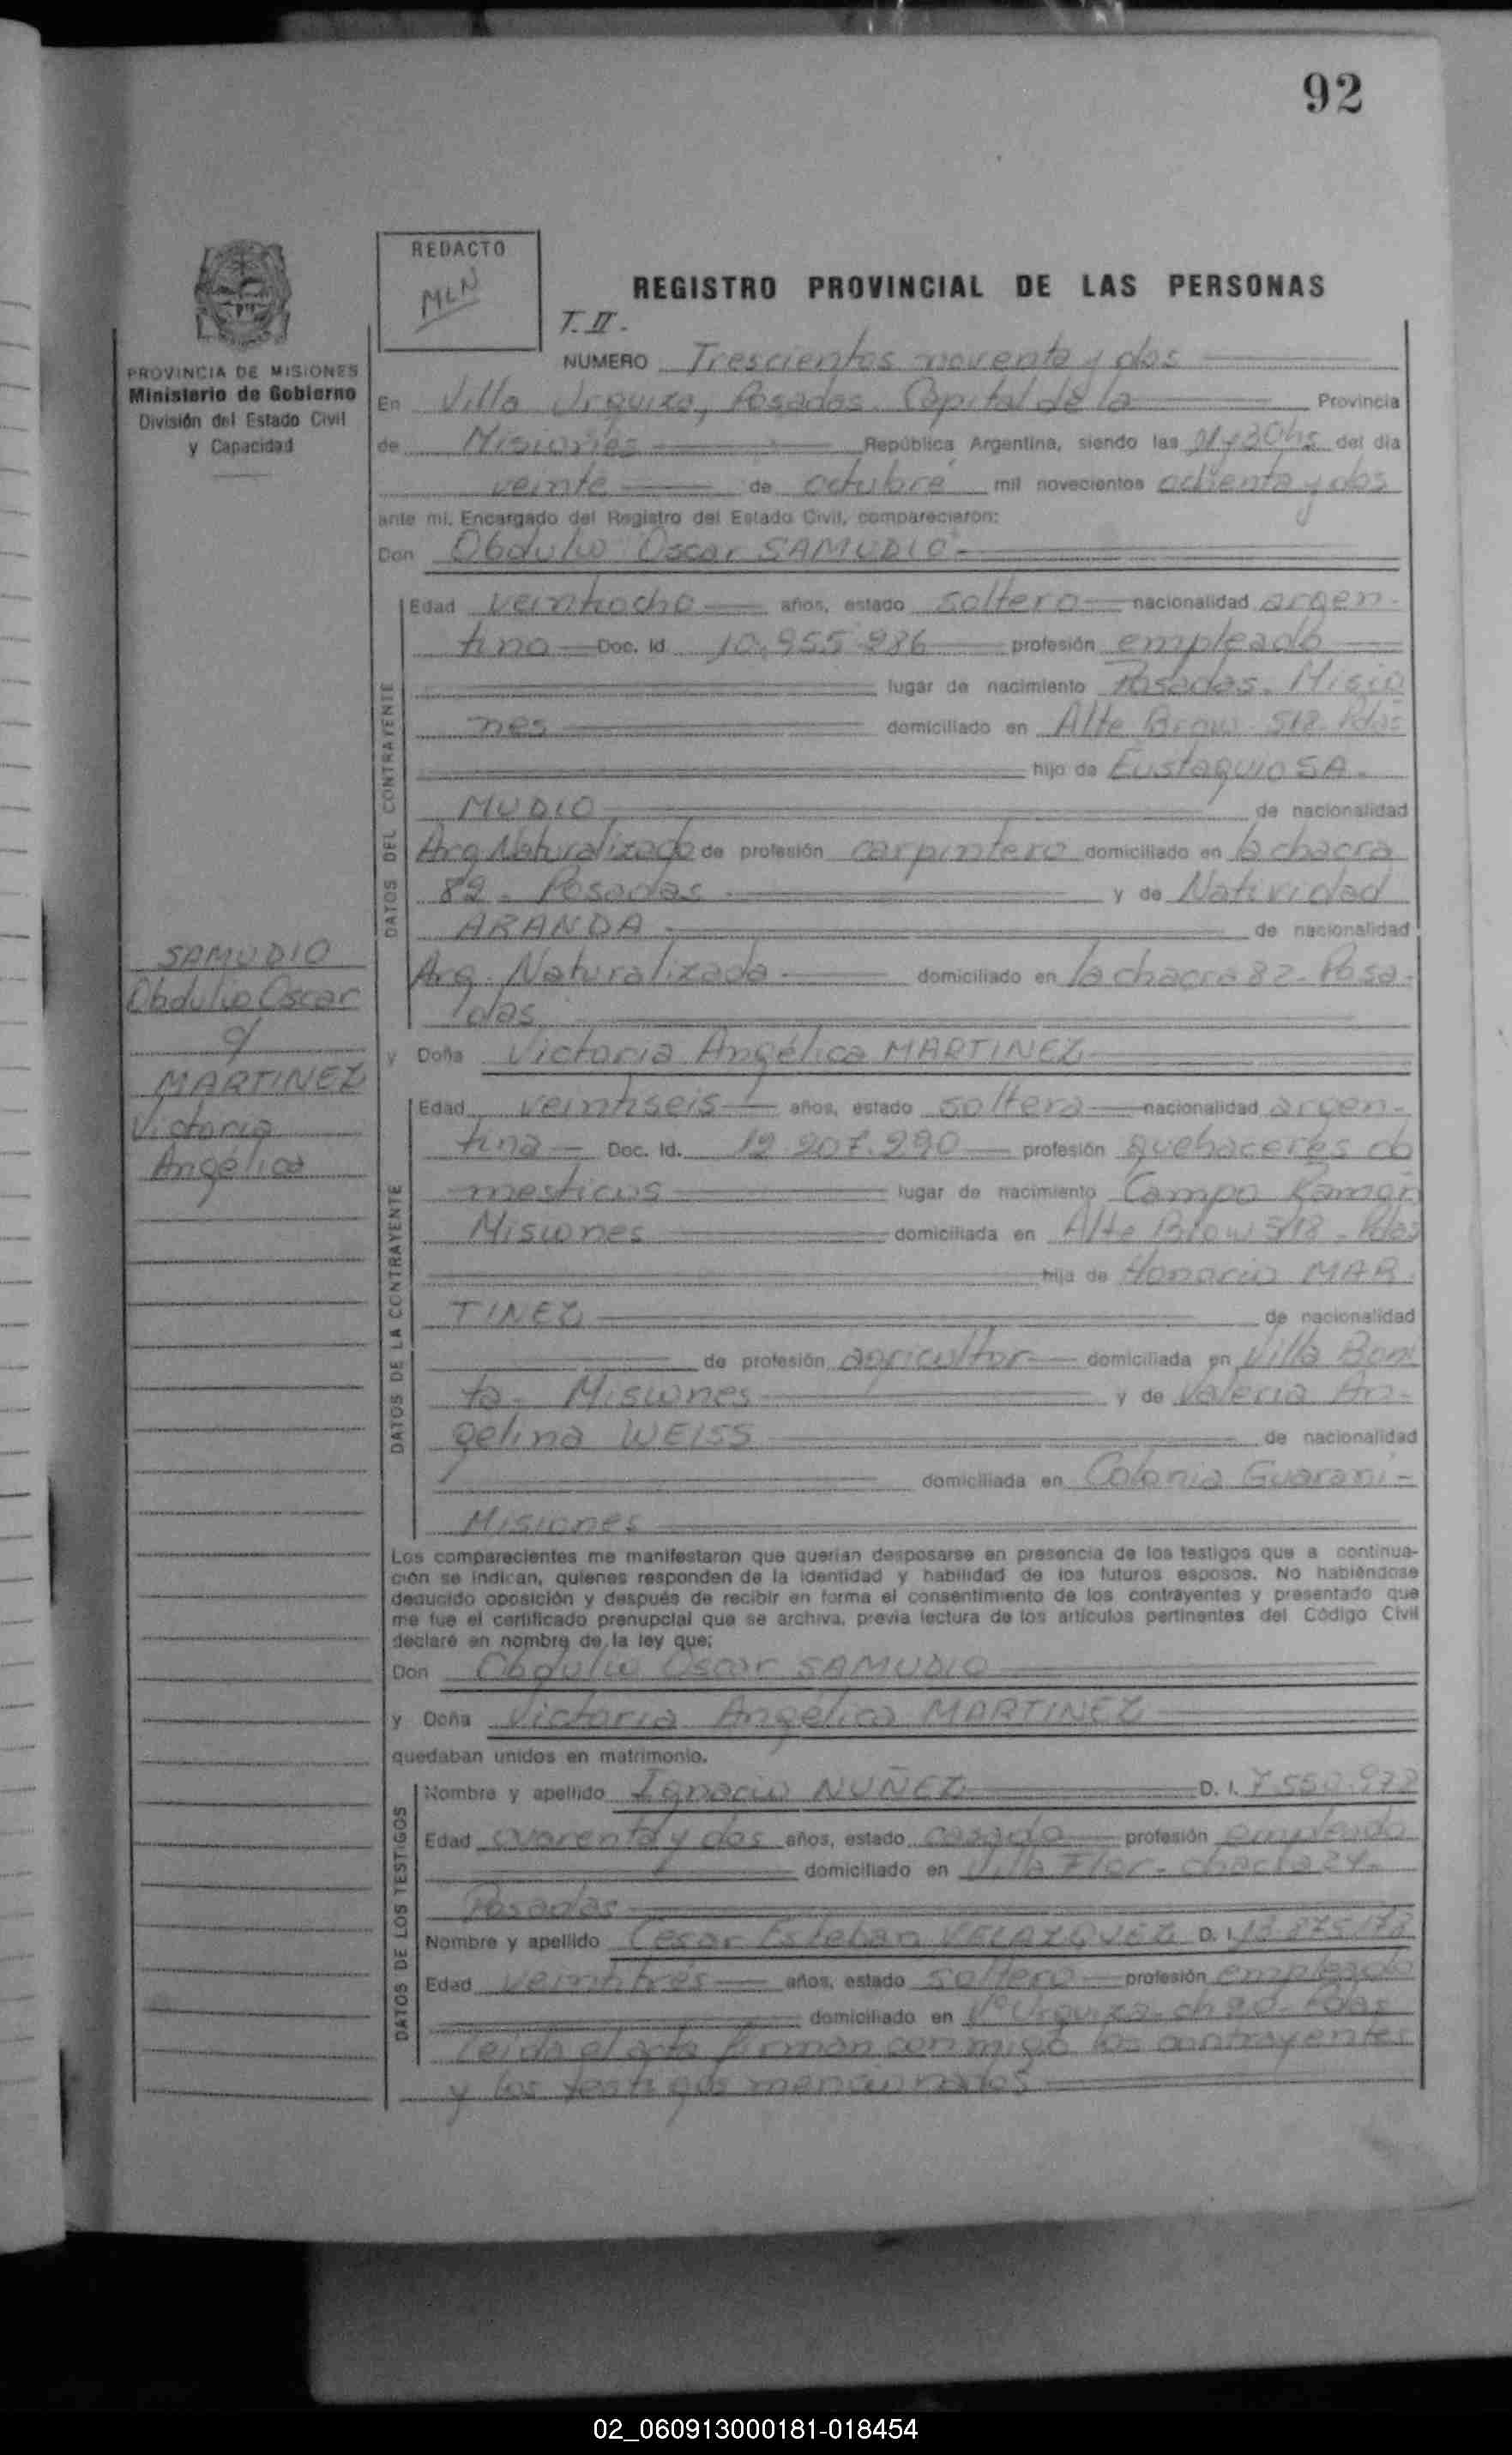 92
REDACTO
MLN
REGISTRO PROVINCIAL DE LAS PERSONAS
T. II.
PROVINCIA DE MISIONES
Ministerio de Gobierno
División del Estado Civil
y Capacidad
NUMERO Trescientos noventa y dos
En Villa Urquiza, Posadas. Capital de la Provincia
de Misiones República Argentina, siendo las y 30hs del día
veinte de octubre mil novecientos ochenta y dos
ante mí, Encargado del Registro del Estado Civil, comparecieron:
Don Obdulio Oscar SAMUDIO.-
DATOS DEL CONTRAYENTE
Edad veintiocho años, estado soltero nacionalidad argen-
tina Doc. Id. 10.955.286 profesión empleado
lugar de nacimiento Posadas. Misio
nes domiciliado en Alte Brow 518 Pdas
hijo de Eustaquio SA-
MUDIO de nacionalidad
Arg. Naturalizado de profesión carpintero domiciliado en la chacra
82 - Posadas y de Natividad
ARANDA de nacionalidad
Arg. Naturalizada domiciliado en la chacra 82 - Posa-
das
SAMUDIO
Obdulio Oscar
c/
MARTINEZ
Victoria
Angélica
y Doña Victoria Angélica MARTINEZ
DATOS DE LA CONTRAYENTE
Edad veintiseis años, estado soltera nacionalidad argen-
tina - Doc. Id. 12.207.290 profesión quehaceres do
mesticos lugar de nacimiento Campo Ramon
Misiones domiciliada en Alte Brow 518 - Pdas
hija de Honorio MAR-
TINEZ de nacionalidad
de profesión agricultor domiciliada en Villa Boni
ta - Misiones y de Valeria An-
gelina WEISS de nacionalidad
domiciliada en Colonia Guaraní -
Misiones
Los comparecientes me manifestaron que querían desposarse en presencia de los testigos que a continua-
ción se indican, quienes responden de la identidad y habilidad de los futuros esposos. No habiéndose
deducido oposición y después de recibir en forma el consentimiento de los contrayentes y presentado que
me fue el certificado prenupcial que se archiva, previa lectura de los artículos pertinentes del Código Civil
declaré en nombre de la ley que:
Don Obdulio Oscar SAMUDIO
y Doña Victoria Angélica MARTINEZ
quedaban unidos en matrimonio.
DATOS DE LOS TESTIGOS
Nombre y apellido Ignacio NUÑEZ D. I. 7.550.972
Edad cuarenta y dos años, estado casado profesión empleado
domiciliado en Villa Flor - chacra 24 -
Posadas
Nombre y apellido Cesar Esteban VELAZQUEZ D. I. 13.875.178
Edad veintitres años, estado soltero profesión empleado
domiciliado en Va Urquiza - ch Pdas
Leida el acta firman conmigo los contrayentes
y los testigos mencionados
02_060913000181-018454